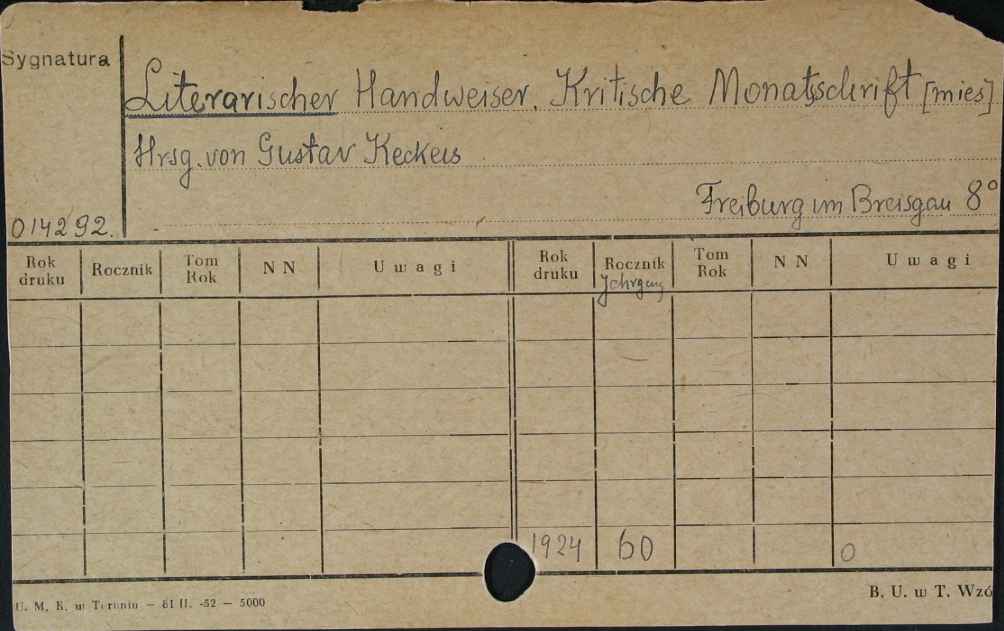 Sygnatura
Literarischer Handweiser. Kritische Monatsschrift [mies]
Hrsg. von Gustav Keckeis
Freiburg im Breisgau 8°
014292.
Rok druku Rocznik Tom Rok NN Uwagi Rok druku Rocznik Tom Rok NN Uwagi
Jahrgang
1924 60 0
U. M. K. w Toruniu — 81 II. -52 — 5000
B. U. w T. Wzó